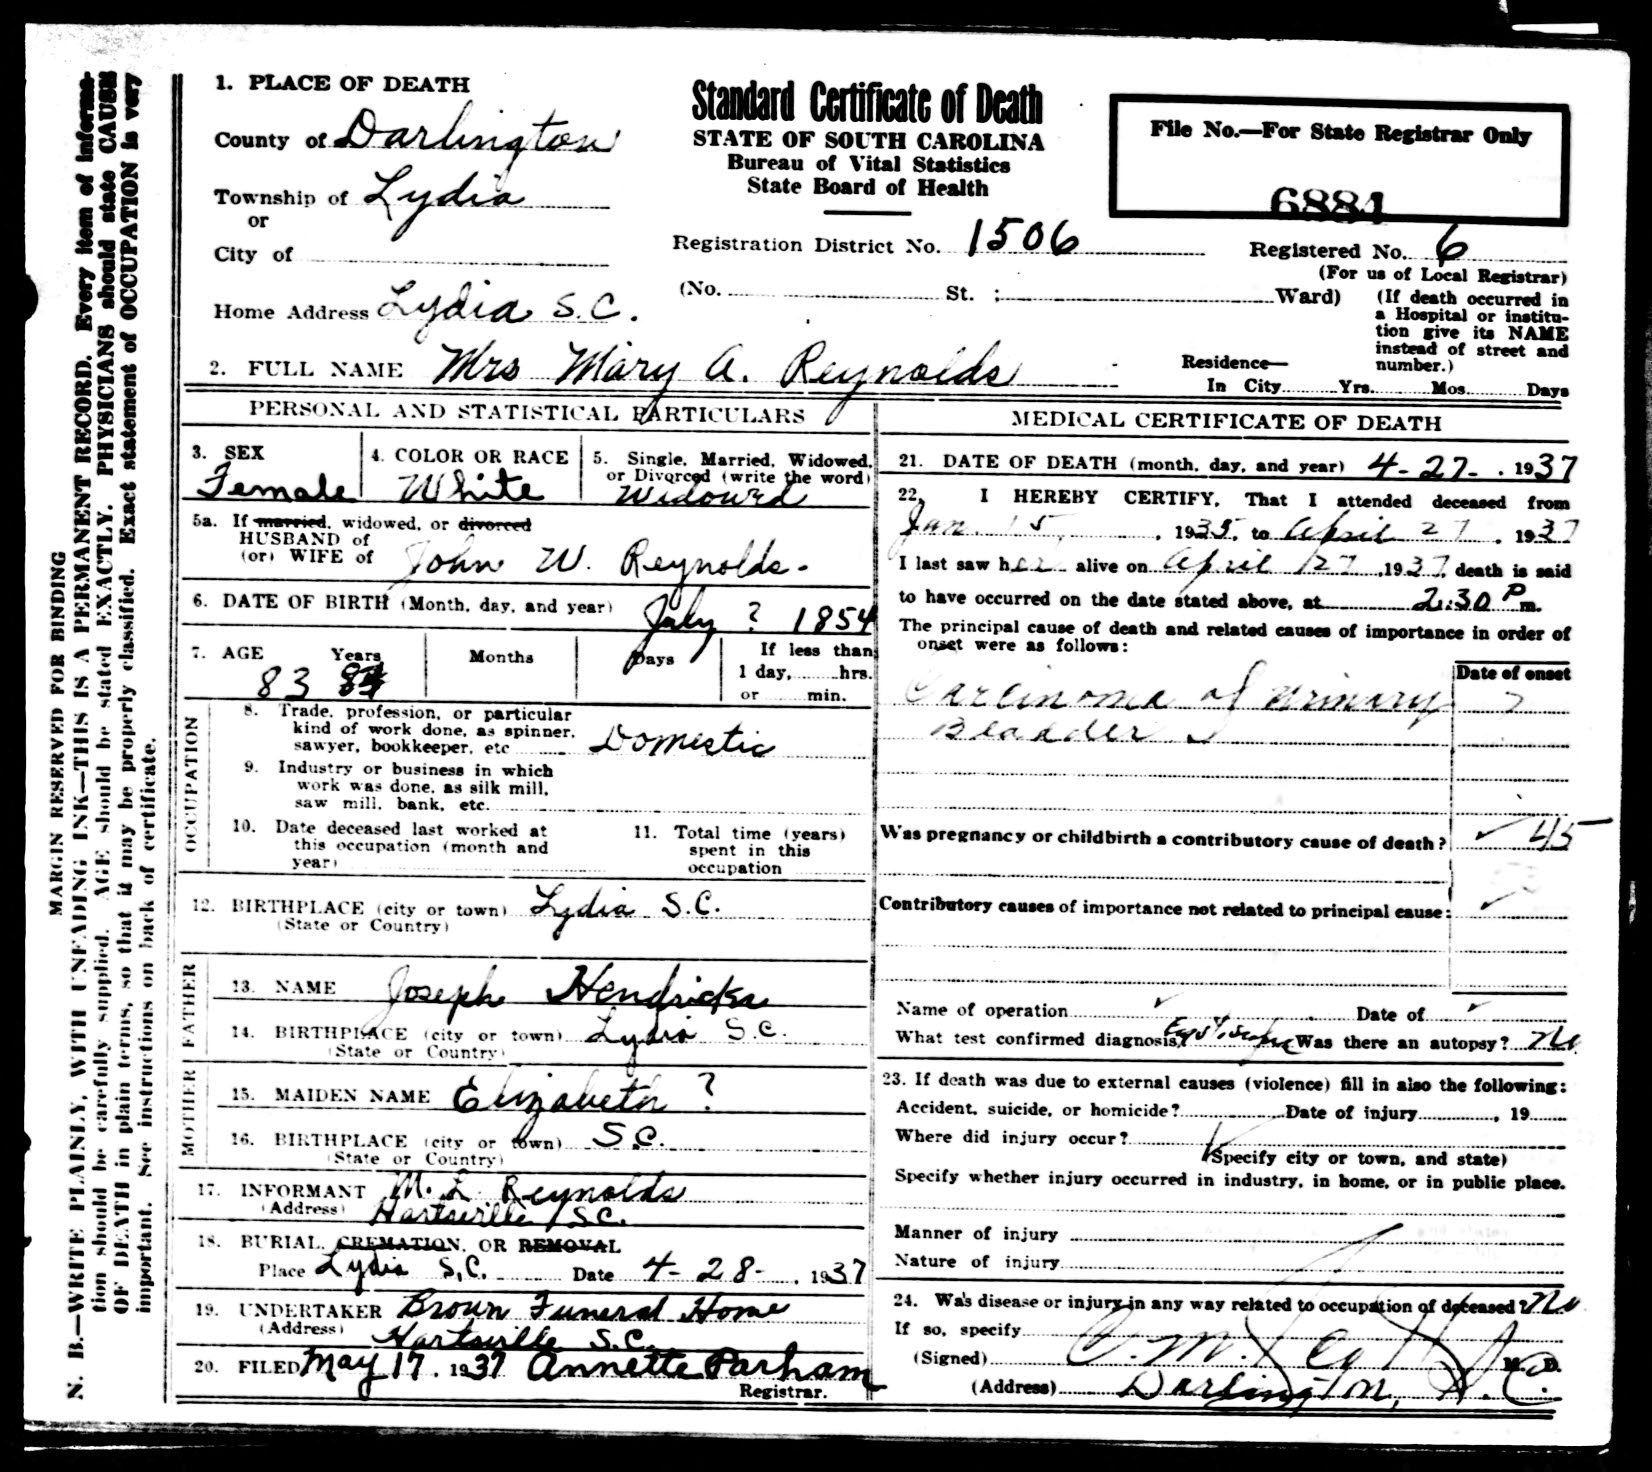 MARGIN RESERVED FOR BINDING
N. B.—WRITE PLAINLY, WITH UNFADING INK—THIS IS A PERMANENT RECORD. Every item of informa-
tion should be carefully supplied. AGE should be stated EXACTLY. PHYSICIANS should state CAUSE
OF DEATH in plain terms, so that it may be properly classified. Exact statement of OCCUPATION is very
important. See instructions on back of certificate.
1. PLACE OF DEATH
County of Darlington
Township of Lydia
or
City of
Home Address Lydia S.C.
Standard Certificate of Death
STATE OF SOUTH CAROLINA
Bureau of Vital Statistics
State Board of Health
File No.—For State Registrar Only
6884
Registration District No. 1506
Registered No. 6
(For us of Local Registrar)
(No. St. ; Ward)
(If death occurred in
a Hospital or institu-
tion give its NAME
instead of street and
number.)
2. FULL NAME Mrs Mary A. Reynolds
Residence—
In City Yrs. Mos. Days
PERSONAL AND STATISTICAL PARTICULARS
3. SEX
Female
4. COLOR OR RACE
White
5. Single, Married, Widowed,
or Divorced (write the word)
Widowed
5a. If married, widowed, or divorced
HUSBAND of
(or) WIFE of John W. Reynolds.
6. DATE OF BIRTH (Month, day, and year) July ? 1854
7. AGE Years Months Days If less than
1 day, hrs.
or min.
83
OCCUPATION
8. Trade, profession, or particular
kind of work done, as spinner,
sawyer, bookkeeper, etc Domestic
9. Industry or business in which
work was done, as silk mill,
saw mill, bank, etc.
10. Date deceased last worked at
this occupation (month and
year)
11. Total time (years)
spent in this
occupation
12. BIRTHPLACE (city or town) Lydia S.C.
(State or Country)
FATHER
13. NAME Joseph Hendricks
14. BIRTHPLACE (city or town) Lydia S.C.
(State or Country)
MOTHER
15. MAIDEN NAME Elizabeth ?
16. BIRTHPLACE (city or town) S.C.
(State or Country)
17. INFORMANT M. L. Reynolds
(Address) Hartsville S.C.
18. BURIAL, CREMATION, OR REMOVAL
Place Lydia S.C. Date 4-28-, 1937
19. UNDERTAKER Brown Funeral Home
(Address) Hartsville S.C.
20. FILED May 17, 1937 Annette Parham
Registrar.
MEDICAL CERTIFICATE OF DEATH
21. DATE OF DEATH (month, day, and year) 4-27-, 1937
22. I HEREBY CERTIFY, That I attended deceased from
Jan. 15, 1935, to April 27, 1937
I last saw her alive on April 27, 1937, death is said
to have occurred on the date stated above, at 2:30 P m.
The principal cause of death and related causes of importance in order of
onset were as follows:
Date of onset
Carcinoma of Urinary ?
Bladder
Was pregnancy or childbirth a contributory cause of death? ✓ 45
Contributory causes of importance not related to principal cause: ✓
Name of operation ✓ Date of ✓
What test confirmed diagnosis? Was there an autopsy? No
23. If death was due to external causes (violence) fill in also the following:
Accident, suicide, or homicide? Date of injury , 19
Where did injury occur?
(Specify city or town, and state)
Specify whether injury occurred in industry, in home, or in public place.
Manner of injury
Nature of injury
24. Was disease or injury in any way related to occupation of deceased? No
If so, specify
(Signed) M. D.
(Address) Darlington, S.C.